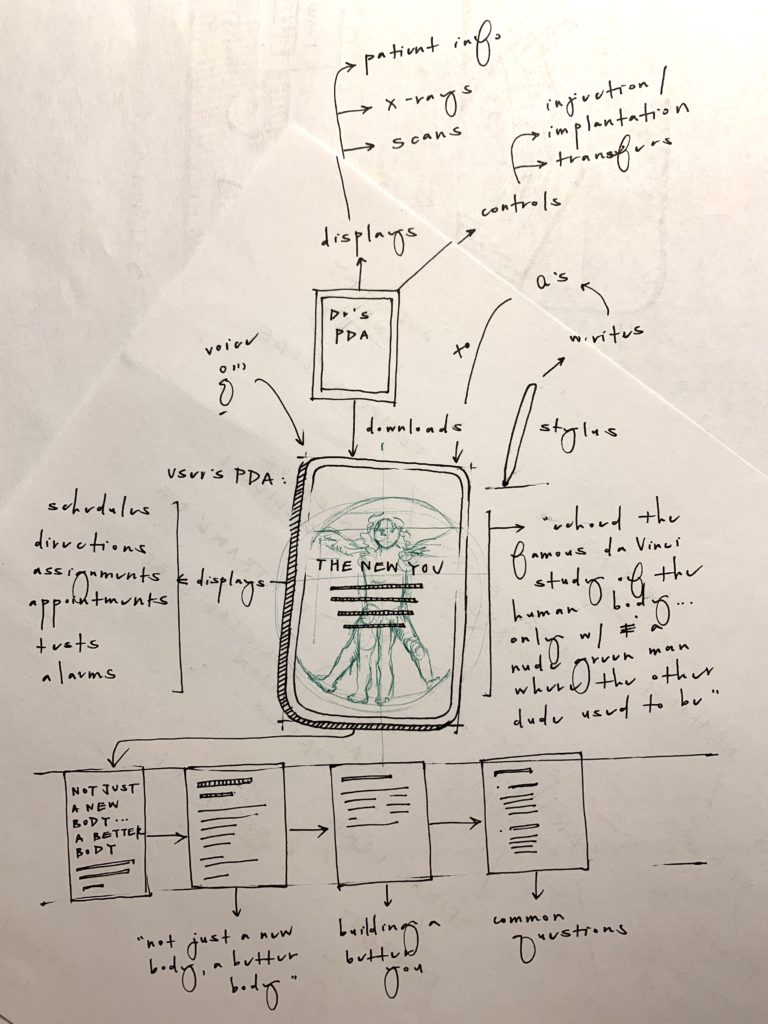 patient info
x-rays
scans
injection /
implantation
transfers
controls
displays
Dr's
PDA
a's
writes
voice
downloads
stylus
user's PDA:
schedules
directions
assignments
appointments
tests
alarms
displays
THE NEW YOU
"echoed the
famous da Vinci
study of the
human body...
only w/ a
nude green man
where the other
dude used to be"
NOT JUST
A NEW
BODY...
A BETTER
BODY
"not just a new
body, a better
body"
building a
better
you
common
questions